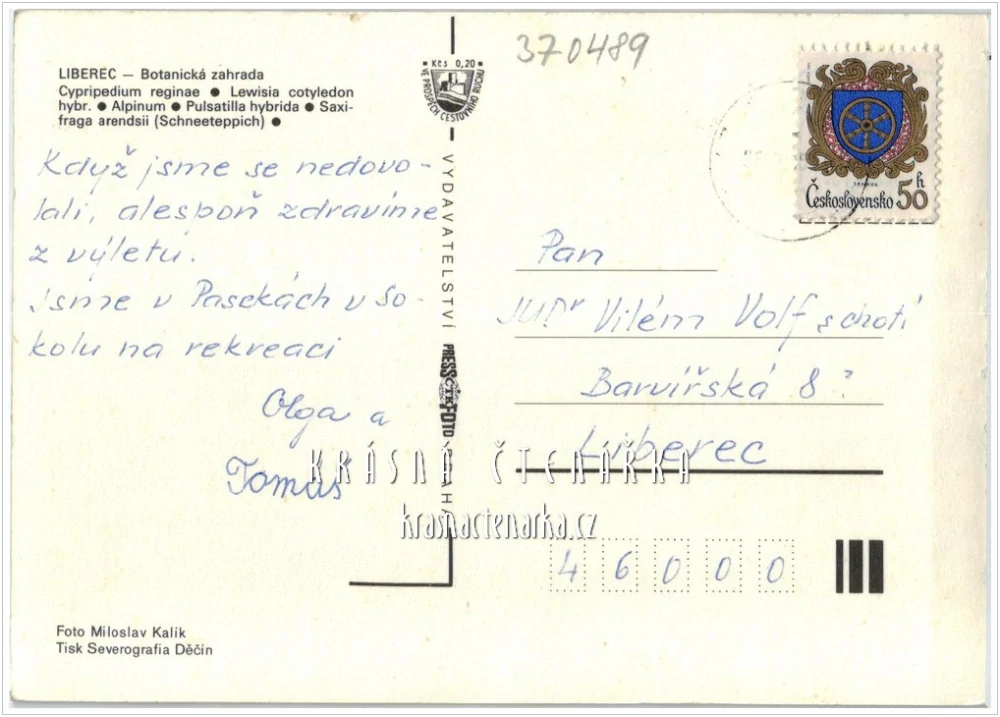 370489
LIBEREC — Botanická zahrada
Cypripedium reginae ● Lewisia cotyledon
hybr. ● Alpinum ● Pulsatilla hybrida ● Saxi-
fraga arendsii (Schneeteppich) ●
Kčs 0,20
VE PROSPĚCH CESTOVNÍHO RUCHU
Československo 50 h
Když jsme se nedovo-
lali, alespoň zdravíme
z výletu.
Jsme v Pasekách v So-
kolu na rekreaci
Olga a
Tomáš
VYDAVATELSTVÍ PRESSFOTO PRAHA
ČTK
Pan
JUDr Vilém Volf s chotí
Barvířská 8
Liberec
46000
KRÁSNÁ ČTENÁŘKA
krasnactenarka.cz
Foto Miloslav Kalík
Tisk Severografia Děčín